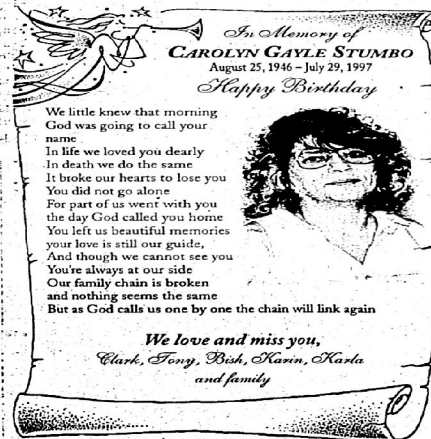 In Memory of
CAROLYN GAYLE STUMBO
August 25, 1946 – July 29, 1997
Happy Birthday
We little knew that morning
God was going to call your
name
In life we loved you dearly
In death we do the same
It broke our hearts to lose you
You did not go alone
For part of us went with you
the day God called you home
You left us beautiful memories
your love is still our guide,
And though we cannot see you
You're always at our side
Our family chain is broken
and nothing seems the same
But as God calls us one by one the chain will link again
We love and miss you,
Clark, Tony, Bish, Karin, Karla
and family